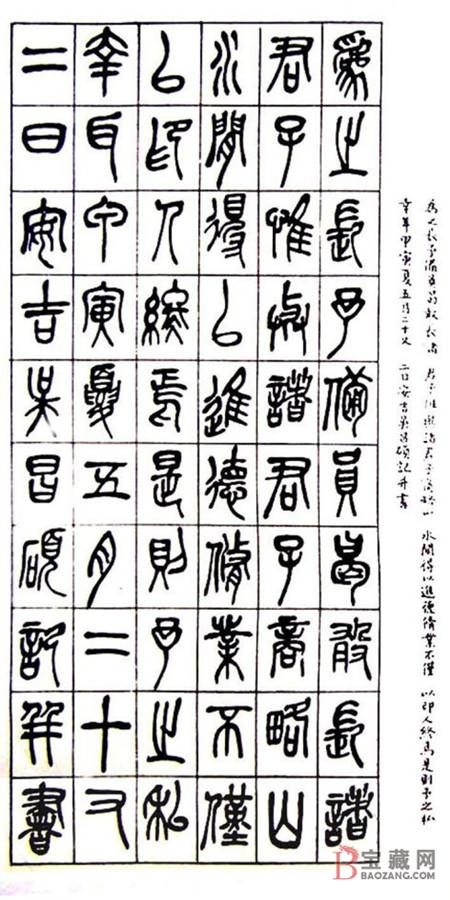 為之長予備員曷敢長諸
君子惟與諸君子商略山
水間得以進德脩業不僅
以印人終焉是則予之私
幸耳甲寅夏五月二十又
二日安吉吳昌碩記并書
為之長予備員曷敢長諸 君子惟與諸君子商略山 水間得以進德脩業不僅 以印人終焉是則予之私
幸耳甲寅夏五月二十又 二日安吉吳昌碩記并書
宝藏网
BAOZANG.COM